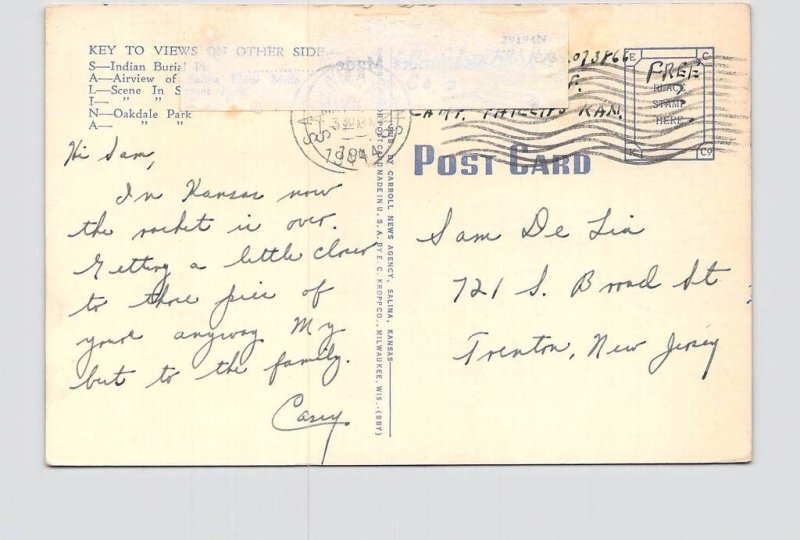 KEY TO VIEWS ON OTHER SIDE
S—Indian Burial
A—Airview of
L—Scene In
I— " "
N—Oakdale Park
A— " "
29194N
FREE
PLACE
STAMP
HERE
CAMP PHILLIPS KAN.
POST CARD
PUB. BY CARROLL NEWS AGENCY, SALINA, KANSAS—
COLORPOSTCARD MADE IN U. S. A. BY E. C. KROPP CO., MILWAUKEE, WIS.—(BBY)
Hi Sam,
In Kansas now
the racket is over.
Getting a little closer
to those pies of
yours anyway My
best to the family.
Casey
Sam De Lia
721 S. Broad St
Trenton, New Jersey